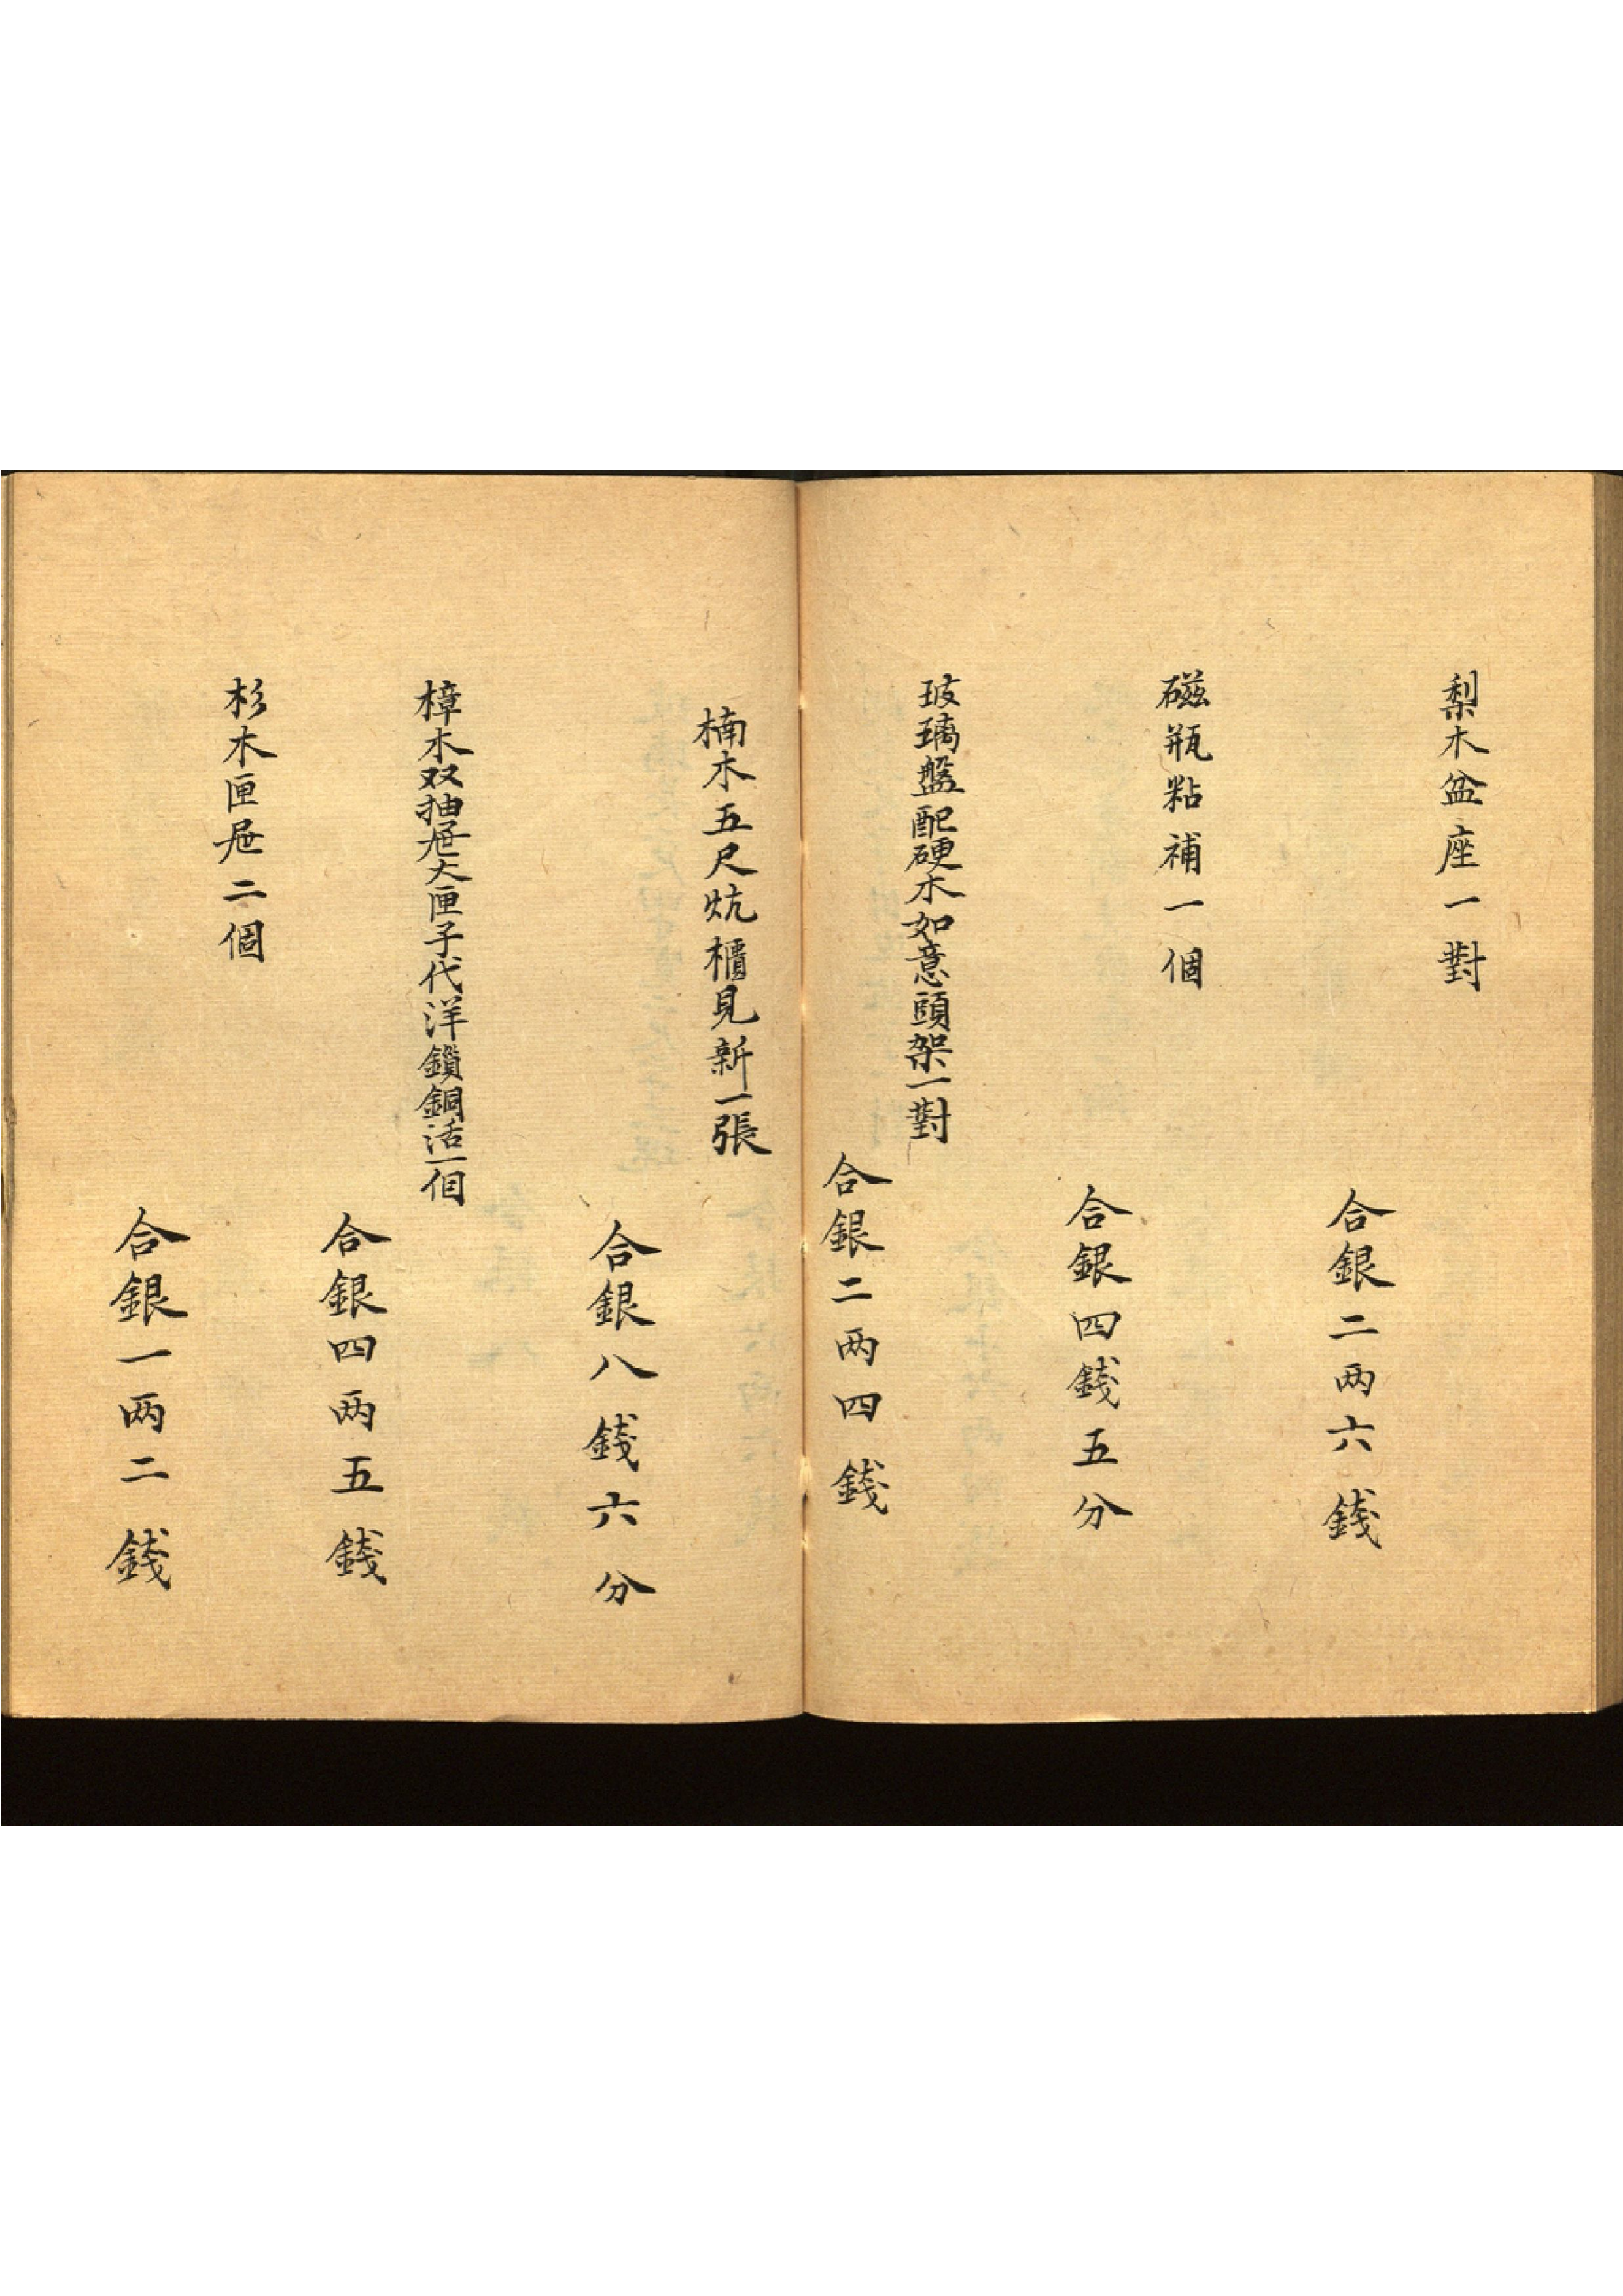 梨木盆座一對
合銀二两六錢
磁瓶粘補一個
合銀四錢五分
玻璃盤配硬木如意頭架一對
合銀二两四錢
楠木五尺炕櫃見新一張
合銀八錢六分
樟木双抽屉大匣子代洋鎖銅活一個
合銀四两五錢
杉木匣屉二個
合銀一两二錢